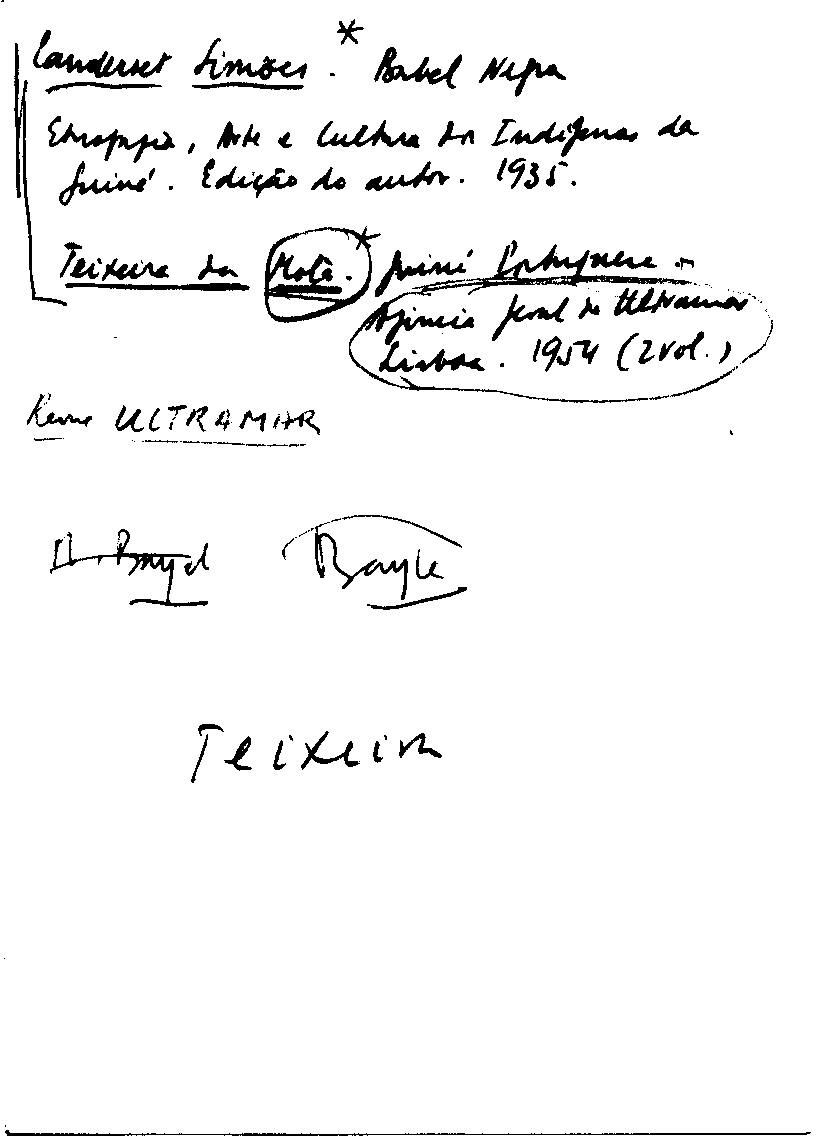 Landerset Simões. * Babel Negra
Etnografia, Arte e Cultura dos Indígenas da
Guiné. Edição do autor. 1935.
Teixeira da Mota. * Guiné Portuguesa.
Agência Geral do Ultramar
Lisboa. 1954 (2 vol.)
Revue ULTRAMAR
Bayle
Teixeira